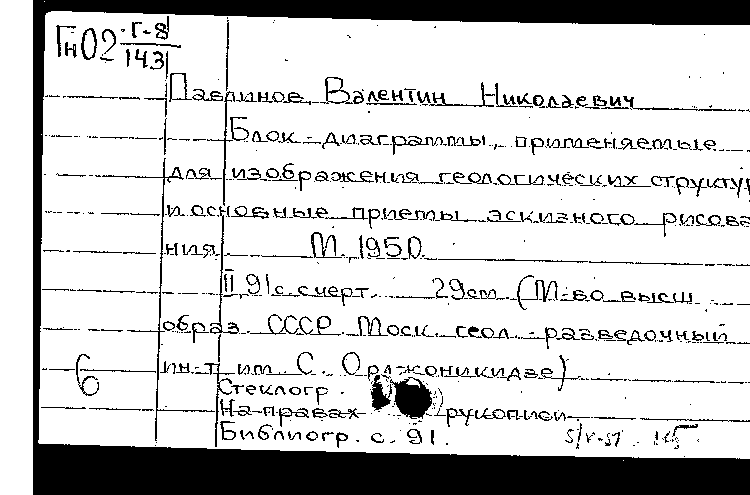 Гн02 Г-8
143
Павлинов, Валентин Николаевич
Блок-диаграммы, применяемые
для изображения геологических структур
и основные приемы эскизного рисова-
ния М., 1950.
II, 91 с. с черт. 29 см (М-во высш
образ. СССР. Моск. геол.-разведочный
6 ин-т им. С. Орджоникидзе)
Стеклогр.
На правах рукописи
Библиогр. с. 91.